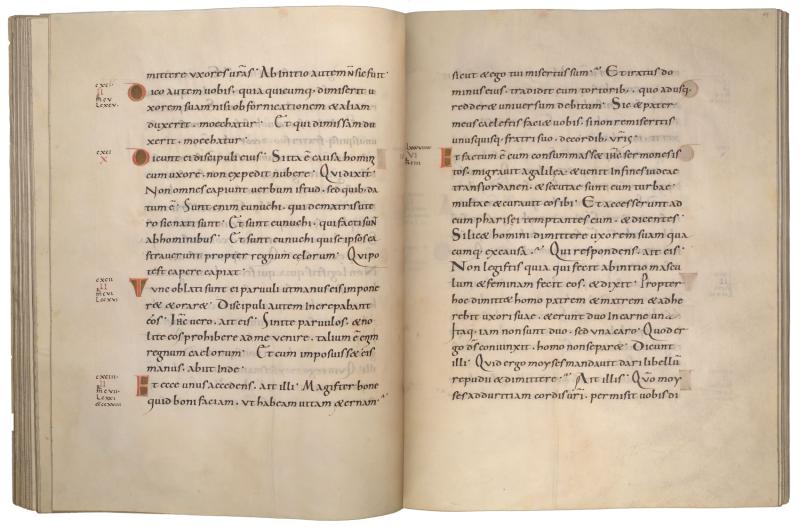 mittere uxores urãs· Ab initio autem ñ sic fuit·
Dico autem uobis, quia quicumq; dimiserit u
xorem suam nisi ob fornicationem & aliam
duxerit, moechatur· Et qui dimissam du
xerit, moechatur·
Dicunt ei discipuli eius· Si ita ẽ causa hominis
cum uxore, non expedit nubere· Qui dixit·
Non omnes capiunt uerbum istud, sed quib; da
tum ẽ· Sunt enim eunuchi, qui de matris ute
ro sic nati sunt· Et sunt eunuchi, qui facti sunt
ab hominibus· Et sunt eunuchi qui se ipsos ca
strauerunt propter regnum cęlorum· Qui po
test capere capiat·
Tunc oblati sunt ei paruuli ut manus eis impone
r& & orar&· Discipuli autem increpabant
eos· Ihc uero, ait eis· Sinite paruulos, & no
lite eos prohibere ad me uenire, talium ẽ enim
regnum caelorum· Et cum imposuiss& eis
manus, abiit inde·
Et ecce unus accedens, ait illi· Magister bone
quid boni faciam, ut habeam uitam &ernam·
sicut & ego tui misertus sum· Et iratus do
minus eius, tradidit eum tortorib;, quo adusq;
redder& uniuersum debitum· Sic & pater
meus caelestis faci& uobis, si non remiseritis
unusquisq; fratri suo, de cordib; uris·
Et factum ẽ cum consummass& ihc sermones is
tos, migrauit a galilea, & uenit in fines iudeae
trans iordanen, & secutae sunt eum turbae
multae & curauit eos ibi· Et accesserunt ad
eum pharisei temptantes eum, & dicentes·
Si lic& homini dimittere uxorem suam qua
cumq; ex causa· Qui respondens, ait eis·
Non legistis quia qui fecit ab initio mascu
lum & feminam fecit eos, & dixit· Propter
hoc dimitt& homo patrem & matrem & adhe
rebit uxori suae, & erunt duo in carne una·
Itaq; iam non sunt duo, sed una caro· Quod er
go ds coniunxit, homo non separ&· Dicunt
illi· Quid ergo moyses mandauit dari libellũ
repudii & dimittere· Ait illis· Quo moy
ses ad duritiam cordis uri, permisit uobis di